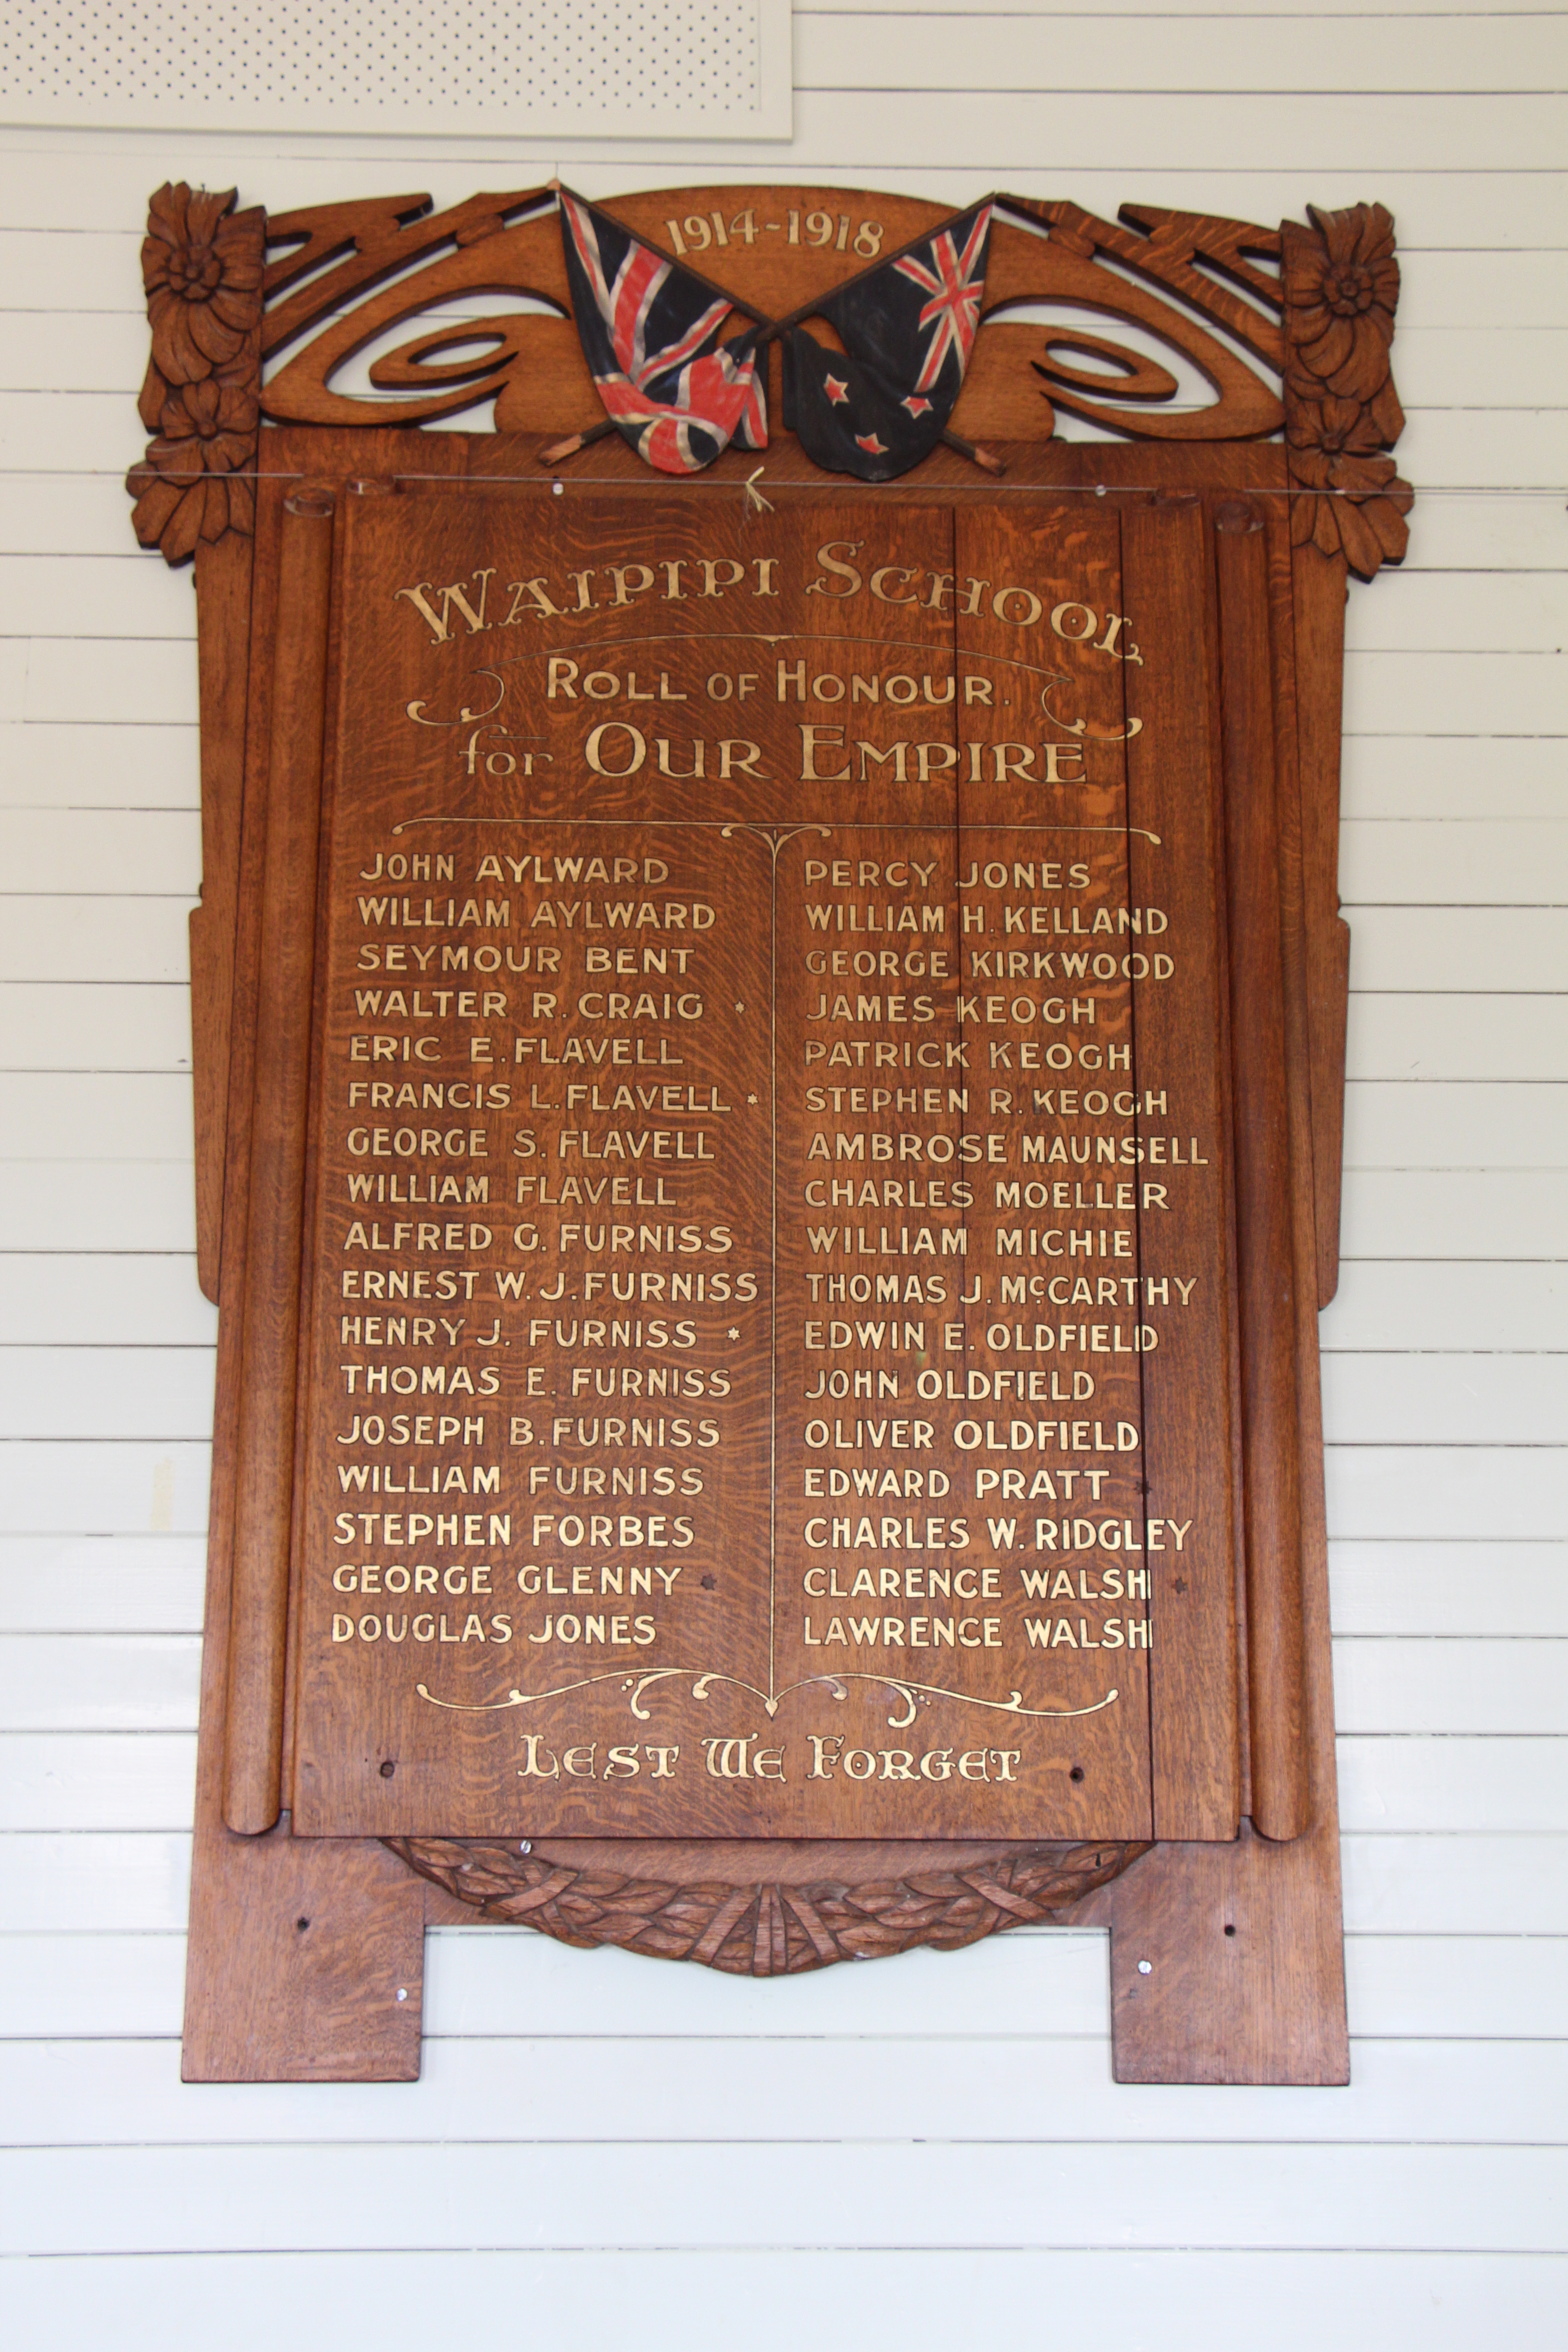 1914-1918
WAIPIPI SCHOOL
ROLL OF HONOUR.
for OUR EMPIRE
JOHN AYLWARD
WILLIAM AYLWARD
SEYMOUR BENT
WALTER R. CRAIG *
ERIC E. FLAVELL
FRANCIS L. FLAVELL *
GEORGE S. FLAVELL
WILLIAM FLAVELL
ALFRED G. FURNISS
ERNEST W. J. FURNISS
HENRY J. FURNISS *
THOMAS E. FURNISS
JOSEPH B. FURNISS
WILLIAM FURNISS
STEPHEN FORBES
GEORGE GLENNY *
DOUGLAS JONES
PERCY JONES
WILLIAM H. KELLAND
GEORGE KIRKWOOD
JAMES KEOGH
PATRICK KEOGH
STEPHEN R. KEOGH
AMBROSE MAUNSELL
CHARLES MOELLER
WILLIAM MICHIE
THOMAS J. McCARTHY
EDWIN E. OLDFIELD
JOHN OLDFIELD
OLIVER OLDFIELD
EDWARD PRATT *
CHARLES W. RIDGLEY
CLARENCE WALSH *
LAWRENCE WALSH
LEST WE FORGET